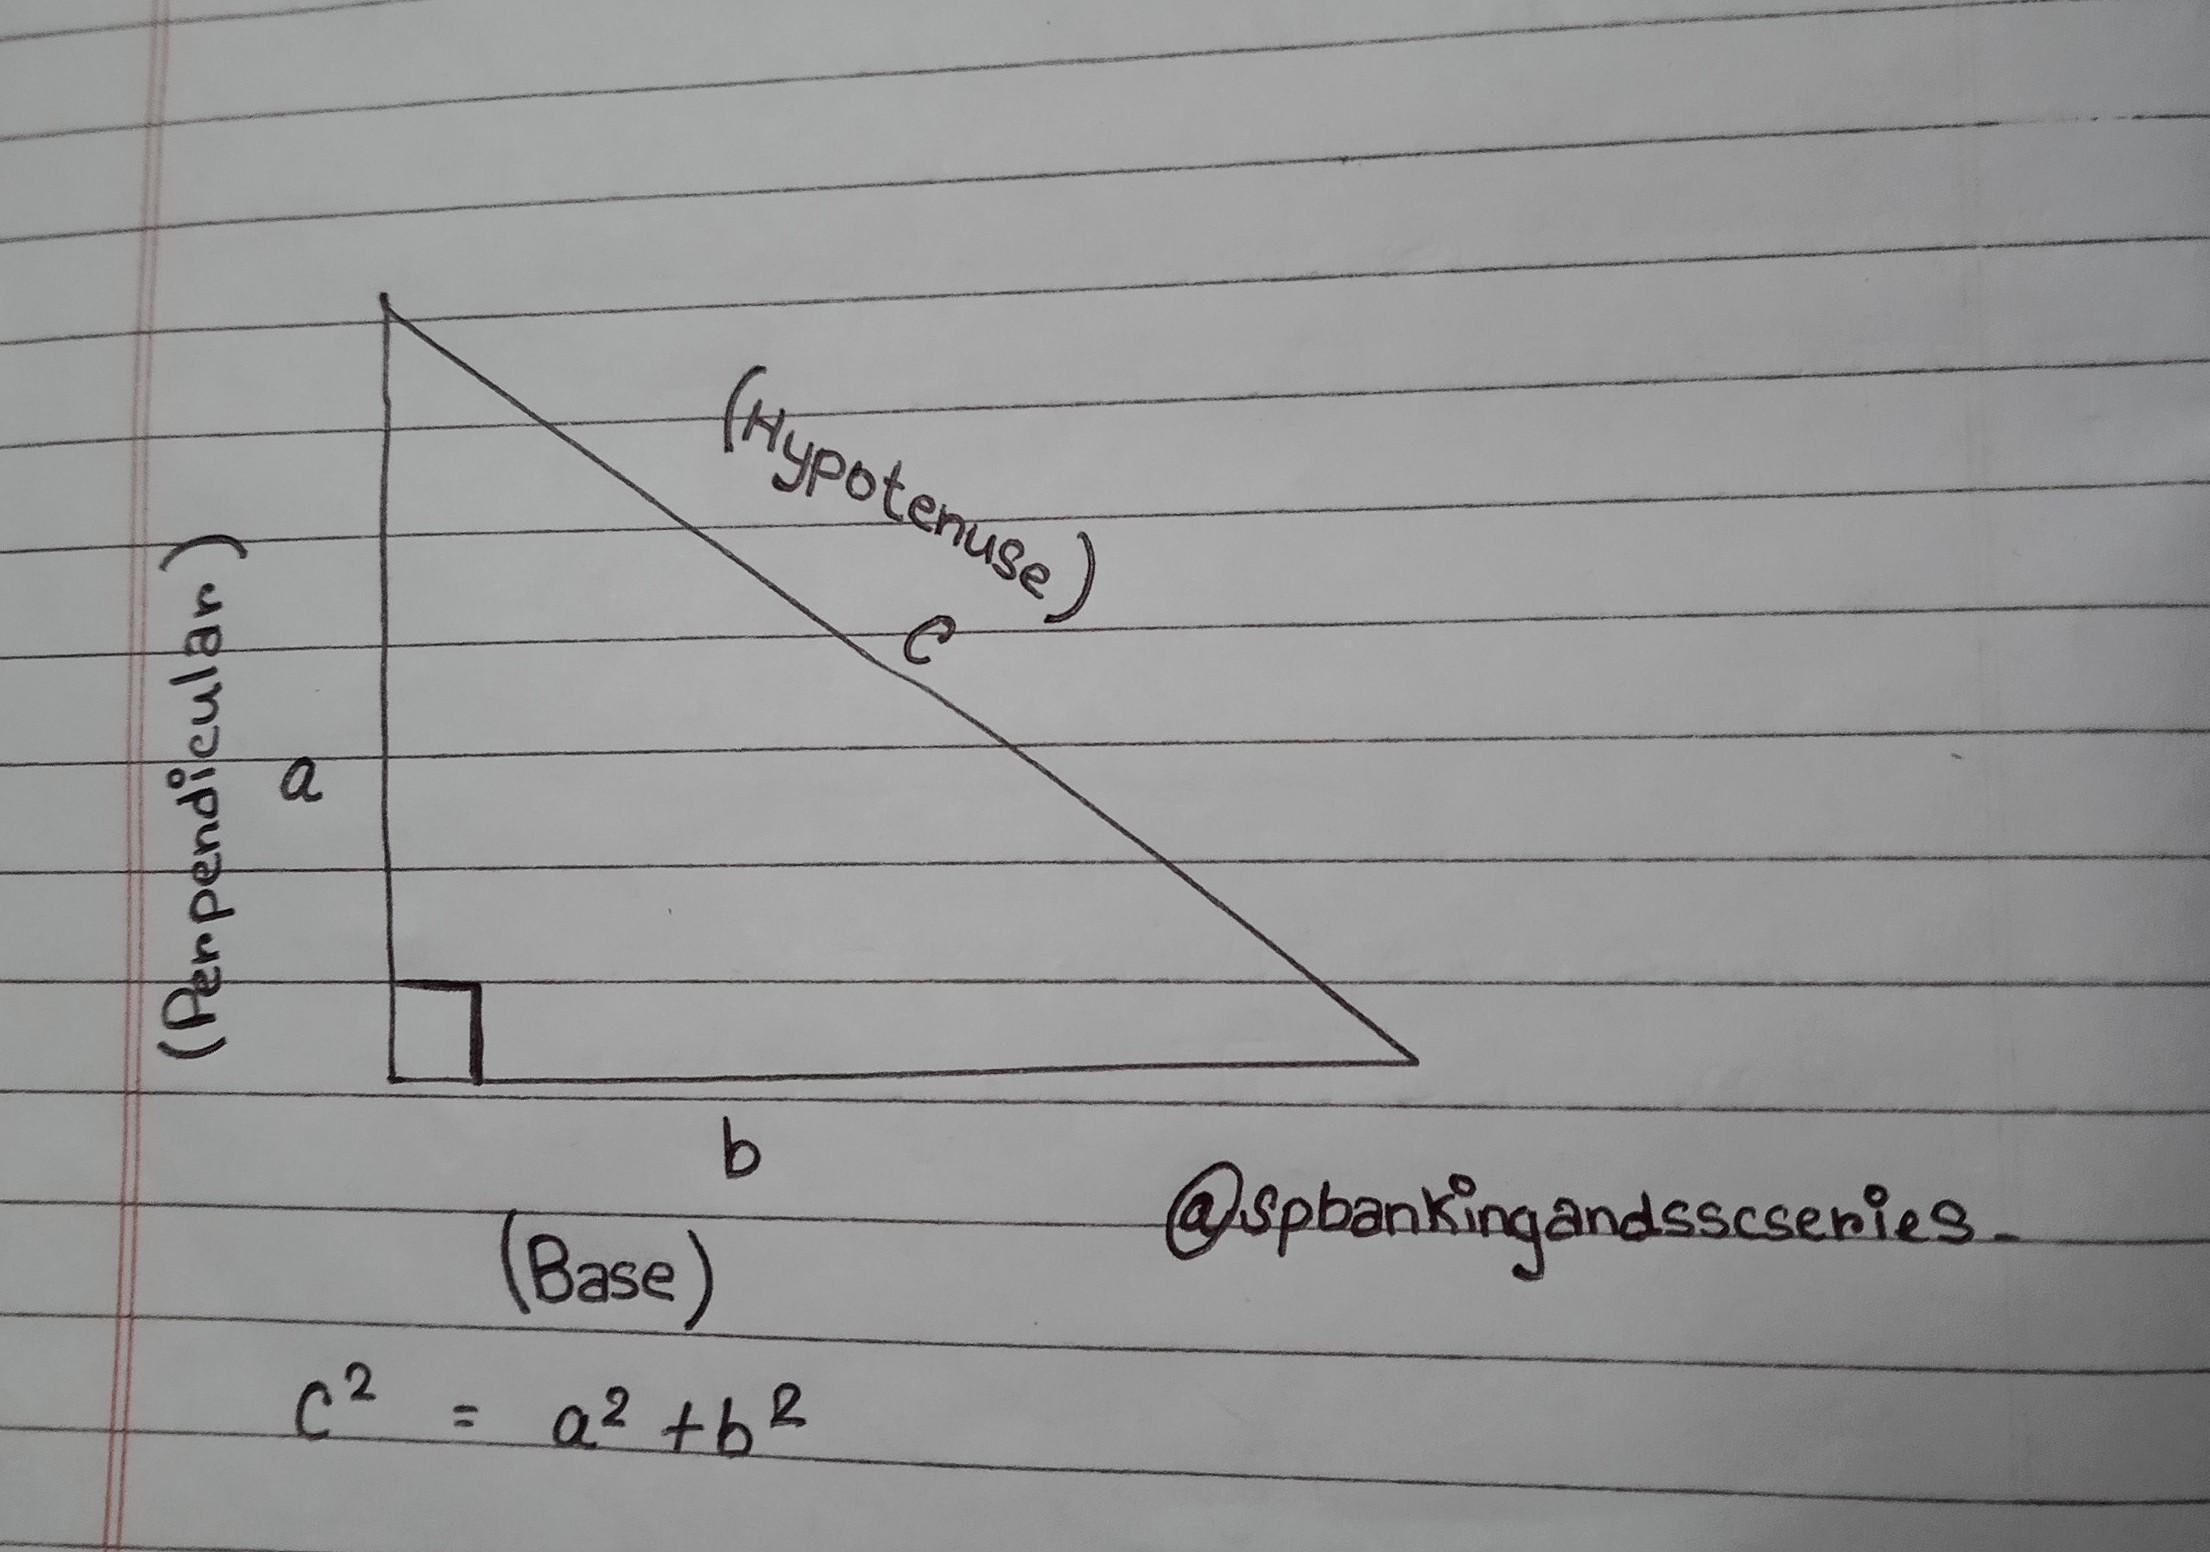 (Hypotenuse)
c
(Perpendicular)
a
b
(Base)
@spbankingandsscseries_
c² = a² + b²